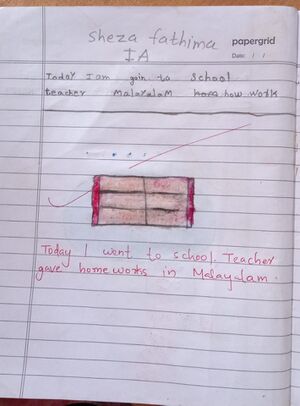 sheza fathima
IA
papergrid
Date: / /
Today I am goin to school
teacher Malayalam how work
Today I went to school. Teacher
gave homeworks in Malayalam.